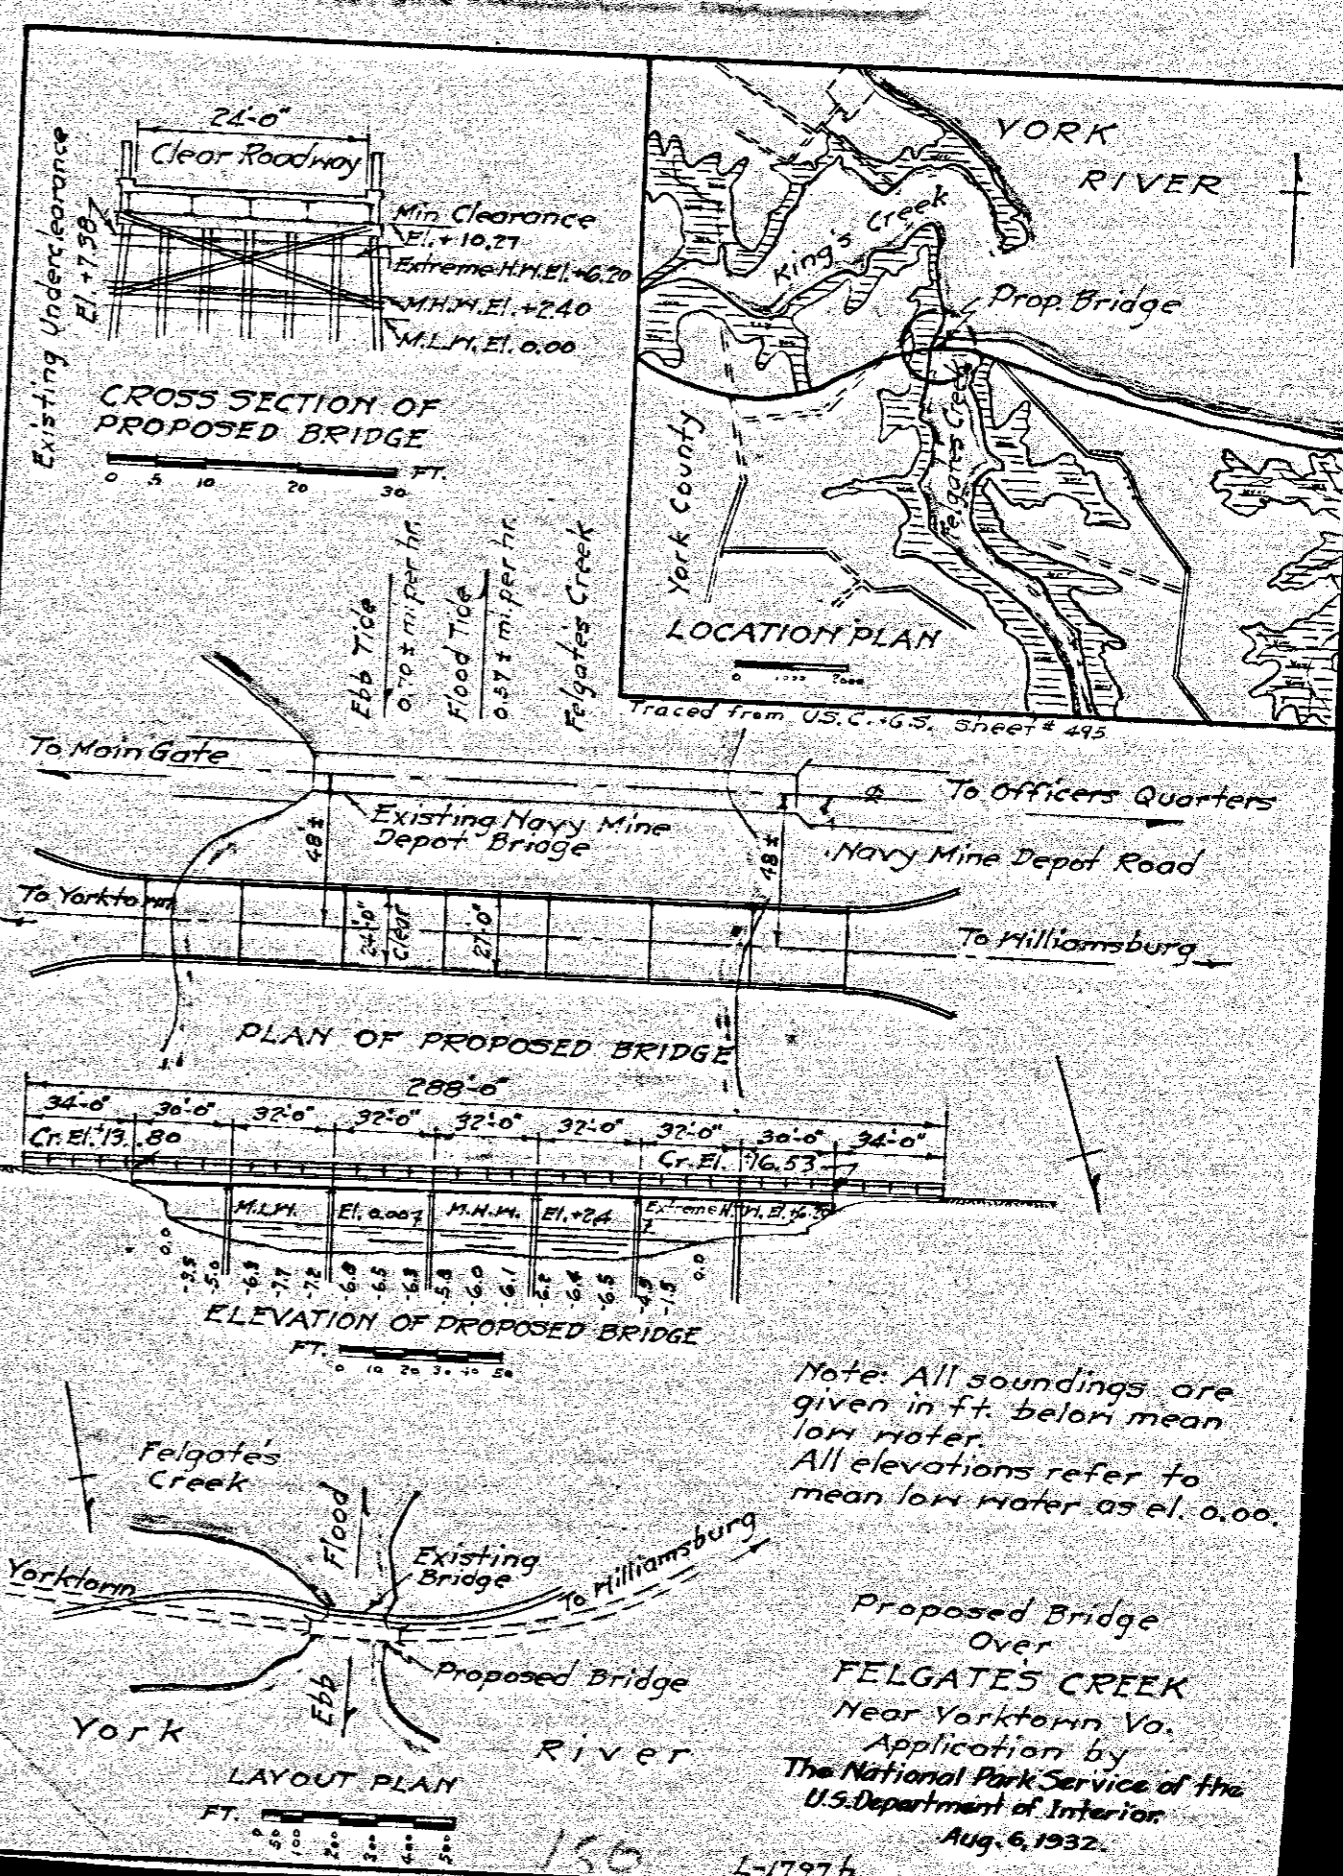 24'-0"
Clear Roadway
Existing Underclearance
El. +7.38
Min Clearance
El. +10.27
Extreme H.W. El. +6.20
M.H.W. El. +2.40
M.L.W. El. 0.00
CROSS SECTION OF
PROPOSED BRIDGE
0 5 10 20 30 FT.
YORK
RIVER
King's Creek
Prop. Bridge
Felgates Creek
York County
LOCATION PLAN
0 1000 2000
Traced from U.S.C.&G.S. Sheet # 495
Ebb Tide
0.70 ± mi. per hr.
Flood Tide
0.57 ± mi. per hr.
Felgates Creek
To Main Gate
Existing Navy Mine
Depot Bridge
To Officers Quarters
Navy Mine Depot Road
48'±
48'±
To Yorktown
24'-0"
Clear
27'-0"
To Williamsburg
PLAN OF PROPOSED BRIDGE
288'-0"
34'-0" 30'-0" 32'-0" 32'-0" 32'-0" 32'-0" 32'-0" 30'-0" 34'-0"
Cr. El. +13.80
Cr. El. +16.53
M.L.W. El. 0.00 M.H.W. El. +2.4 Extreme H.W. El. +6.20
0.0 -3.5 -5.0 -6.3 -7.7 -7.2 -6.8 -6.5 -6.3 -5.8 -6.0 -6.1 -6.2 -6.4 -6.5 -4.5 -1.5 0.0
ELEVATION OF PROPOSED BRIDGE
FT. 0 10 20 30 40 50
Note: All soundings are
given in ft. below mean
low water.
All elevations refer to
mean low water as el. 0.00.
Felgate's
Creek
Flood
Existing
Bridge
To Williamsburg
Yorktown
Ebb
Proposed Bridge
York River
LAYOUT PLAN
FT. 0 50 100 200 300 400 500
Proposed Bridge
Over
FELGATE'S CREEK
Near Yorktown Va.
Application by
The National Park Service of the
U.S. Department of Interior.
Aug. 6, 1932.